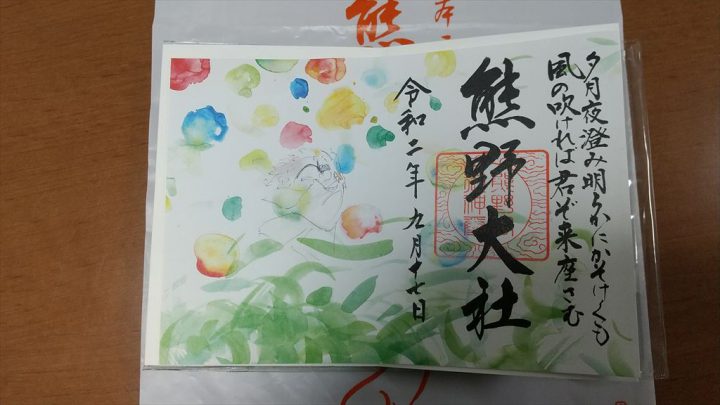 夕月夜澄み明らかにかそけくも
風の吹ければ君ぞ来座さむ
熊野大社
令和二年九月十七日
熊